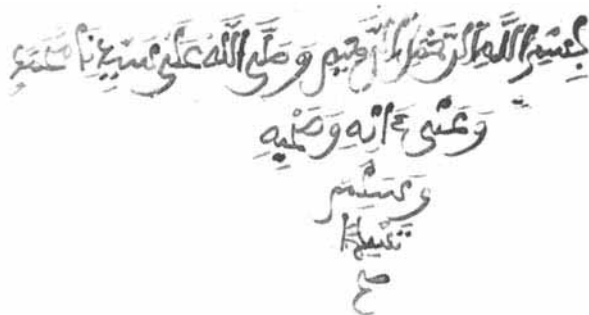 بِسْمِ اللَّهِ الرَّحْمَٰنِ الرَّحِيمِ وَصَلَّى اللَّهُ عَلَى سَيِّدِنَا مُحَمَّدٍ
وَعَلَى ءَالِهِ وَصَحْبِهِ
وَسَلَّمَ
تَسْلِيمًا